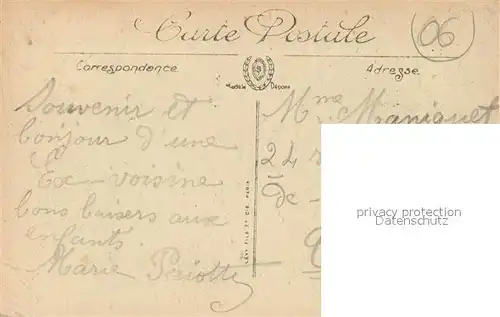 Carte Postale
06
Correspondance
Adresse
Modèle Déposé
Souvenir et
bonjour d'une
Ex-voisine
bons baisers aux
enfants.
Marie
Mme Maniquet
24
de
privacy protection
Datenschutz
LÉVY FILS ET CIE, PARIS